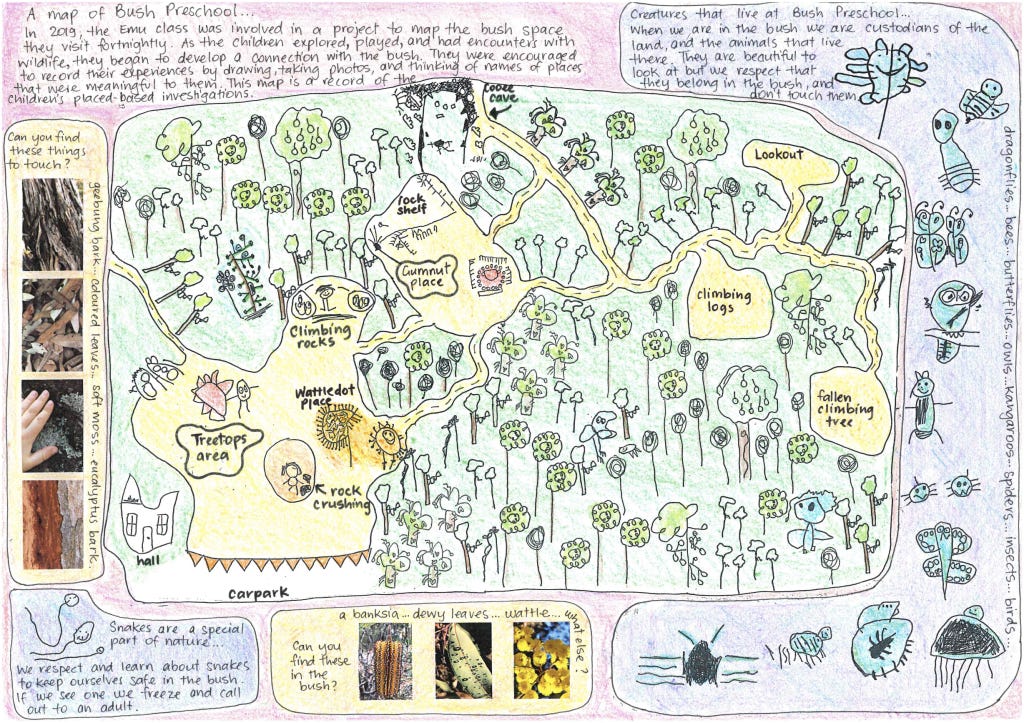 A map of Bush Preschool...
In 2019, the Emu class was involved in a project to map the bush space
they visit fortnightly. As the children explored, played, and had encounters with
wildlife, they began to develop a connection with the bush. They were encouraged
to record their experiences by drawing, taking photos, and thinking of names of places
that were meaningful to them. This map is a record of the
children's placed-based investigations.
Creatures that live at Bush Preschool...
When we are in the bush we are custodians of the
land, and the animals that live
there. They are beautiful to
look at but we respect that
they belong in the bush, and
don't touch them
Can you find
these things
to touch?
geebung bark... coloured leaves... soft moss... eucalyptus bark
cooee
cave
Lookout
rock
shelf
Gumnut
place
climbing
logs
Climbing
rocks
Wattledot
place
fallen
climbing
tree
Treetops
area
rock
crushing
hall
carpark
dragonflies... bees... butterflies... owls... kangaroos... spiders... insects... birds...
Snakes are a special
part of nature...
We respect and learn about snakes
to keep ourselves safe in the bush.
If we see one we freeze and call
out to an adult.
a banksia... dewy leaves... wattle... what else?
Can you
find these
in the
bush?